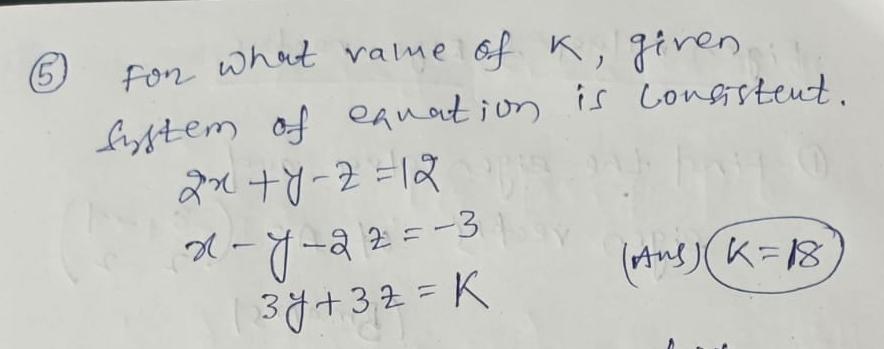 ⑤ For what value of K, given
system of equation is consistent.
2x + y - z = 12
x - y - 2z = -3
(Ans) K = 18
3y + 3z = K